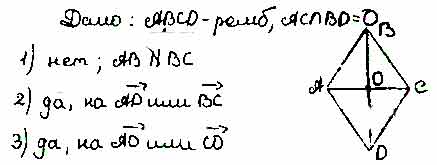 Дано: ABCD-ромб, AC∩BD=O
1) нет; AB ∦ BC
2) да, на AD или BC
3) да, на AO или CO
B
A O C
D